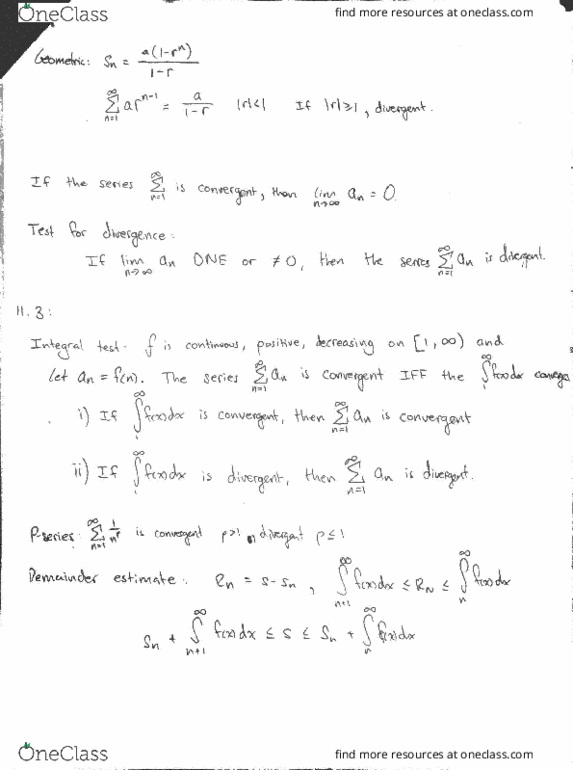 OneClass
find more resources at oneclass.com
Geometric: Sn = a(1-r^n) / 1-r
∞ Σ n=1 ar^n-1 = a / 1-r |r|<1 If |r|≥1, divergent.
If the series ∞ Σ n=1 is convergent, then lim n→∞ an = 0.
Test for divergence:
If lim n→∞ an DNE or ≠0, then the series ∞ Σ n=1 an is divergent.
11.3:
Integral test - f is continuous, positive, decreasing on [1, ∞) and
let an = f(n). The series ∞ Σ n=1 an is convergent IFF the ∫ 1 ∞ f(x)dx converge
i) If ∫ 1 ∞ f(x)dx is convergent, then ∞ Σ n=1 an is convergent
ii) If ∫ 1 ∞ f(x)dx is divergent, then ∞ Σ n=1 an is divergent.
P-series: ∞ Σ n=1 1/n^p is convergent p>1, divergent p≤1
Remainder estimate: Rn = s-sn, ∫ n+1 ∞ f(x)dx ≤ RN ≤ ∫ n ∞ f(x)dx
Sn + ∫ n+1 ∞ f(x)dx ≤ s ≤ Sn + ∫ n ∞ f(x)dx
OneClass
find more resources at oneclass.com